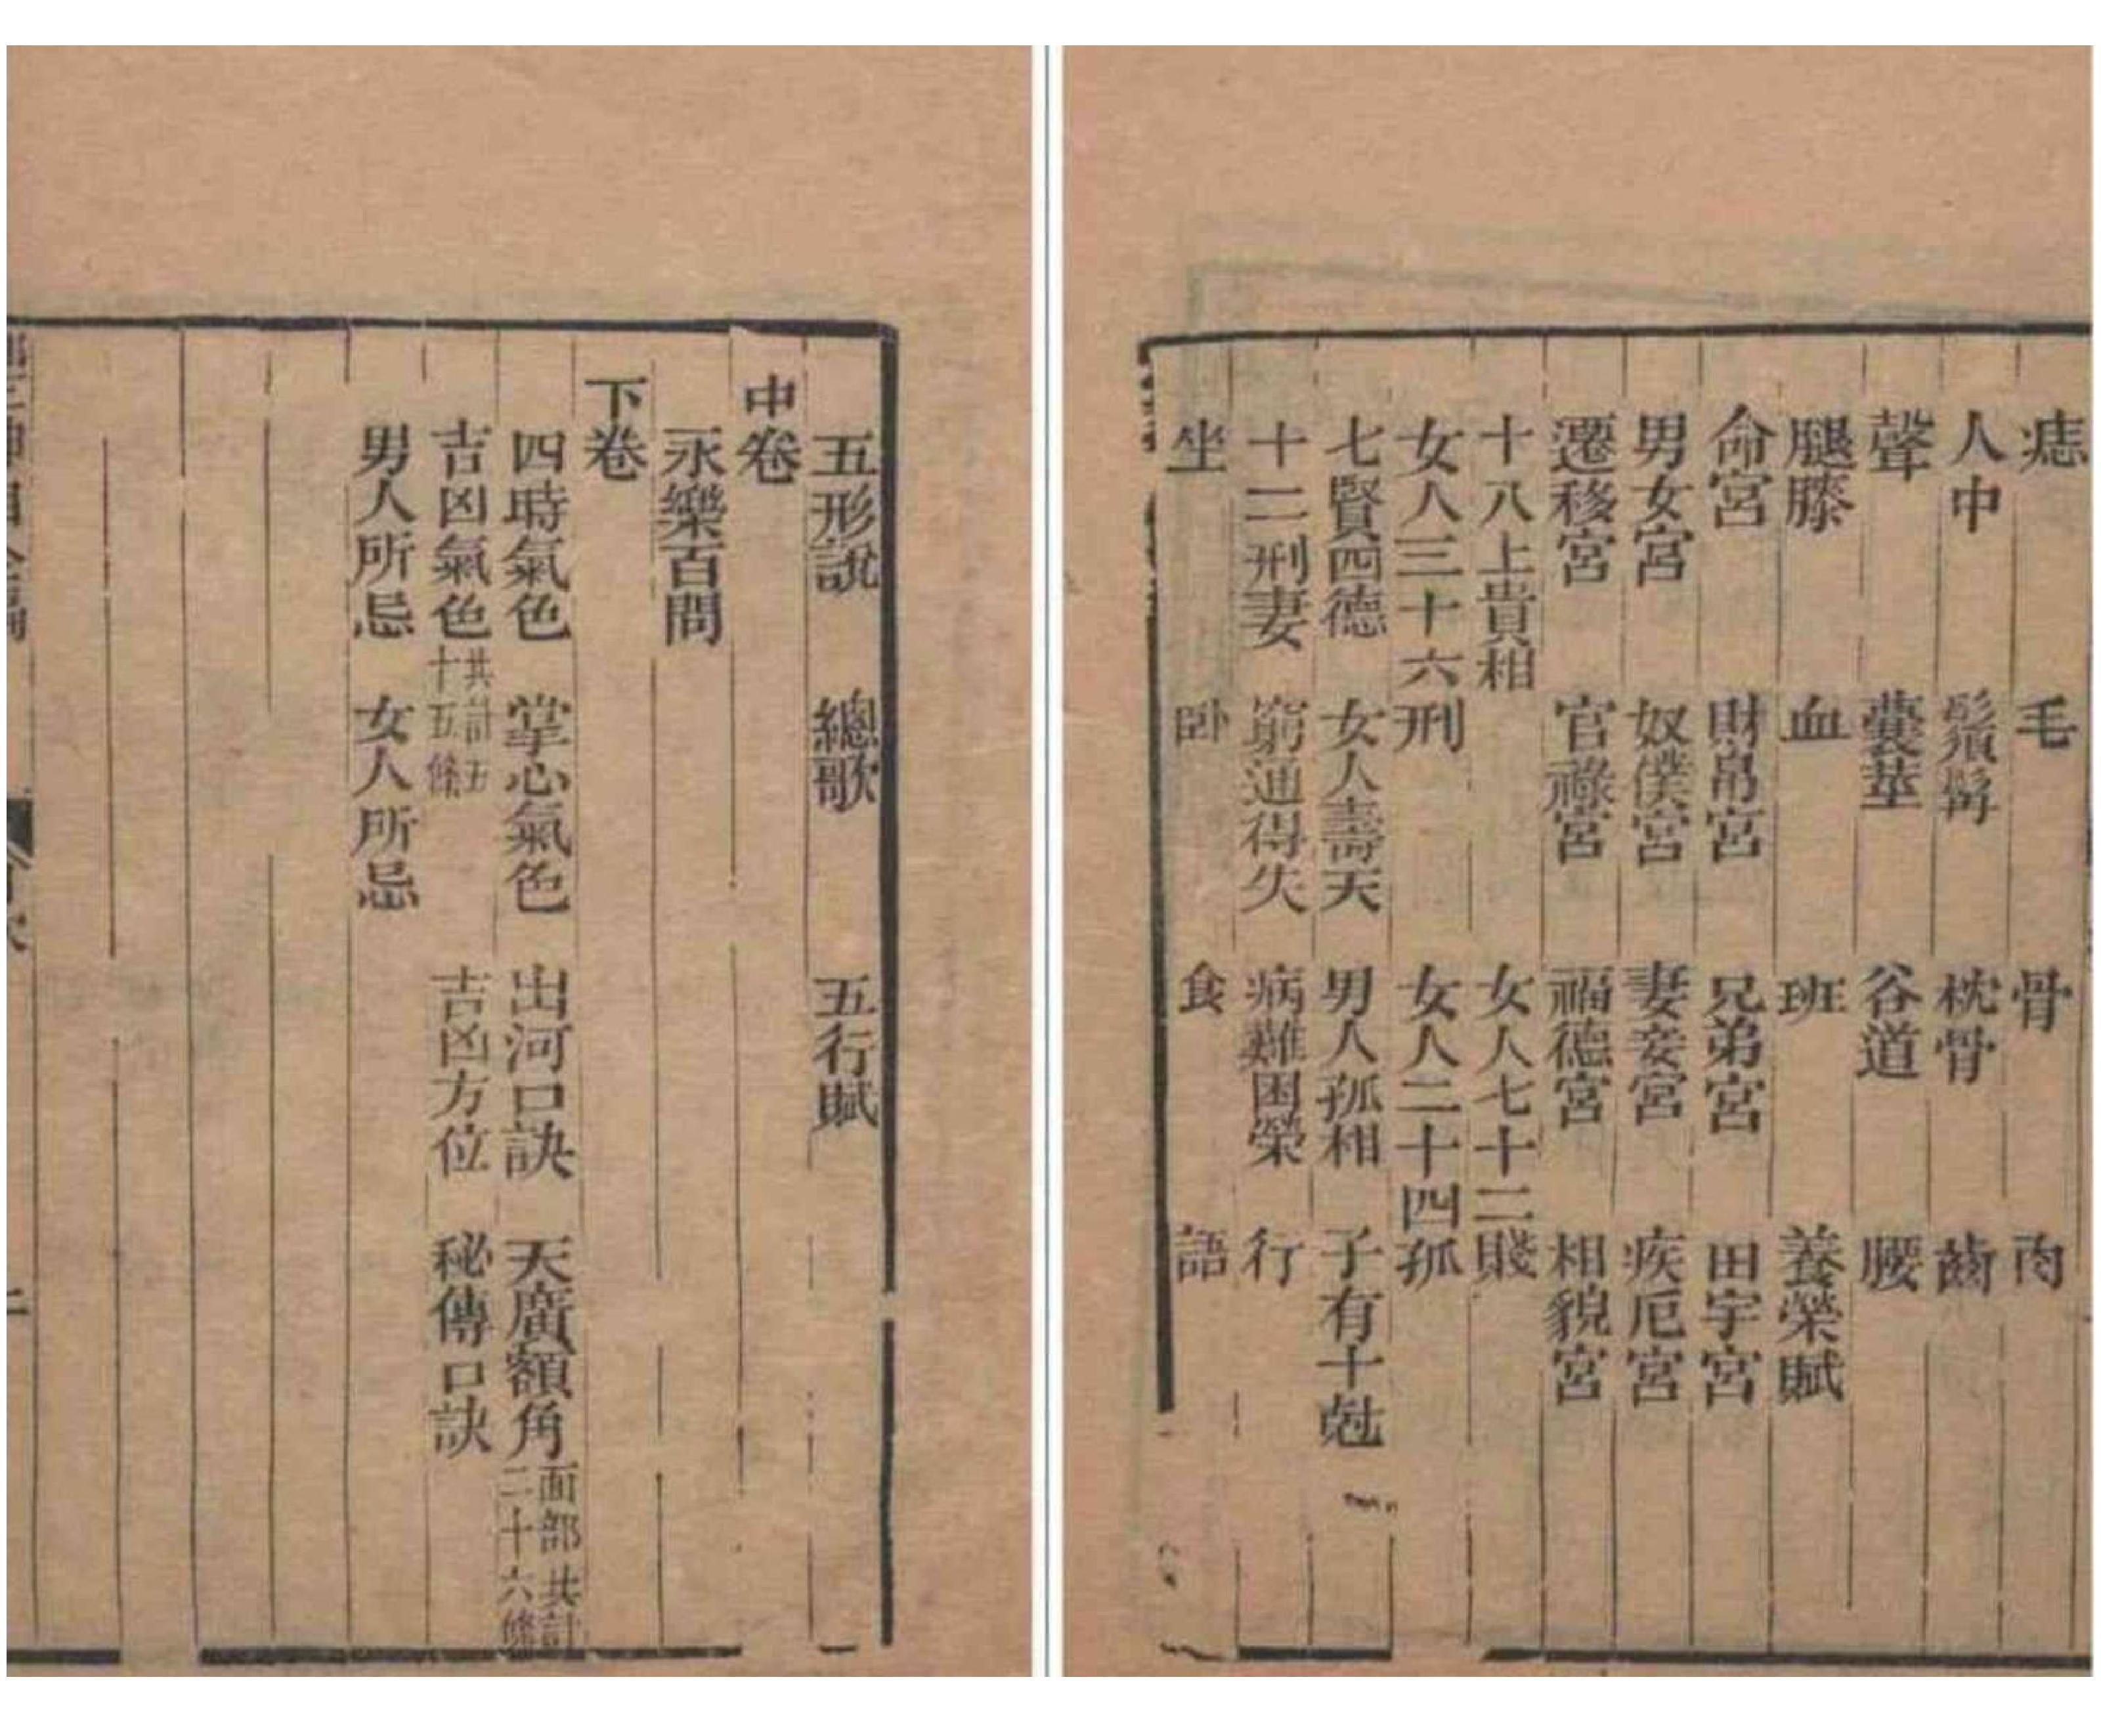 痣 毛 骨 肉
人中 鬚髯 枕骨 齒
聲 囊莖 谷道 腰
腿膝 血 班 養榮賦
命宮 財帛宮 兄弟宮 田宇宮
男女宮 奴僕宮 妻妾宮 疾厄宮
遷移宮 官祿宮 福德宮 相貌宮
十八上貴相 女人七十二賤
女人三十六刑 女人二十四孤
七賢四德 女人壽夭 男人孤相 子有十尅
十二刑妻 窮通得失 病難困榮 行
坐 卧 食 語
五形說 總歌 五行賦
中卷
永樂百問
下卷
四時氣色 掌心氣色 出河口訣 天廣額角 面部共計二十六條
吉凶氣色 共計五十五條 吉凶方位 秘傳口訣
男人所忌 女人所忌